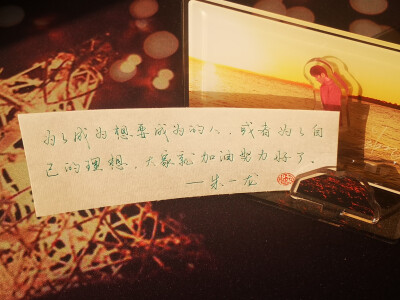 为了成为想要成为的人，或者为了自
己的理想，大家就加油努力好了。
——朱一龙